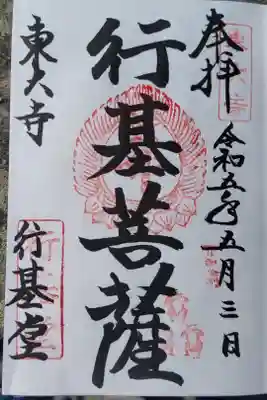 奉拝
令和五年五月三日
行基菩薩
東大寺
行基堂